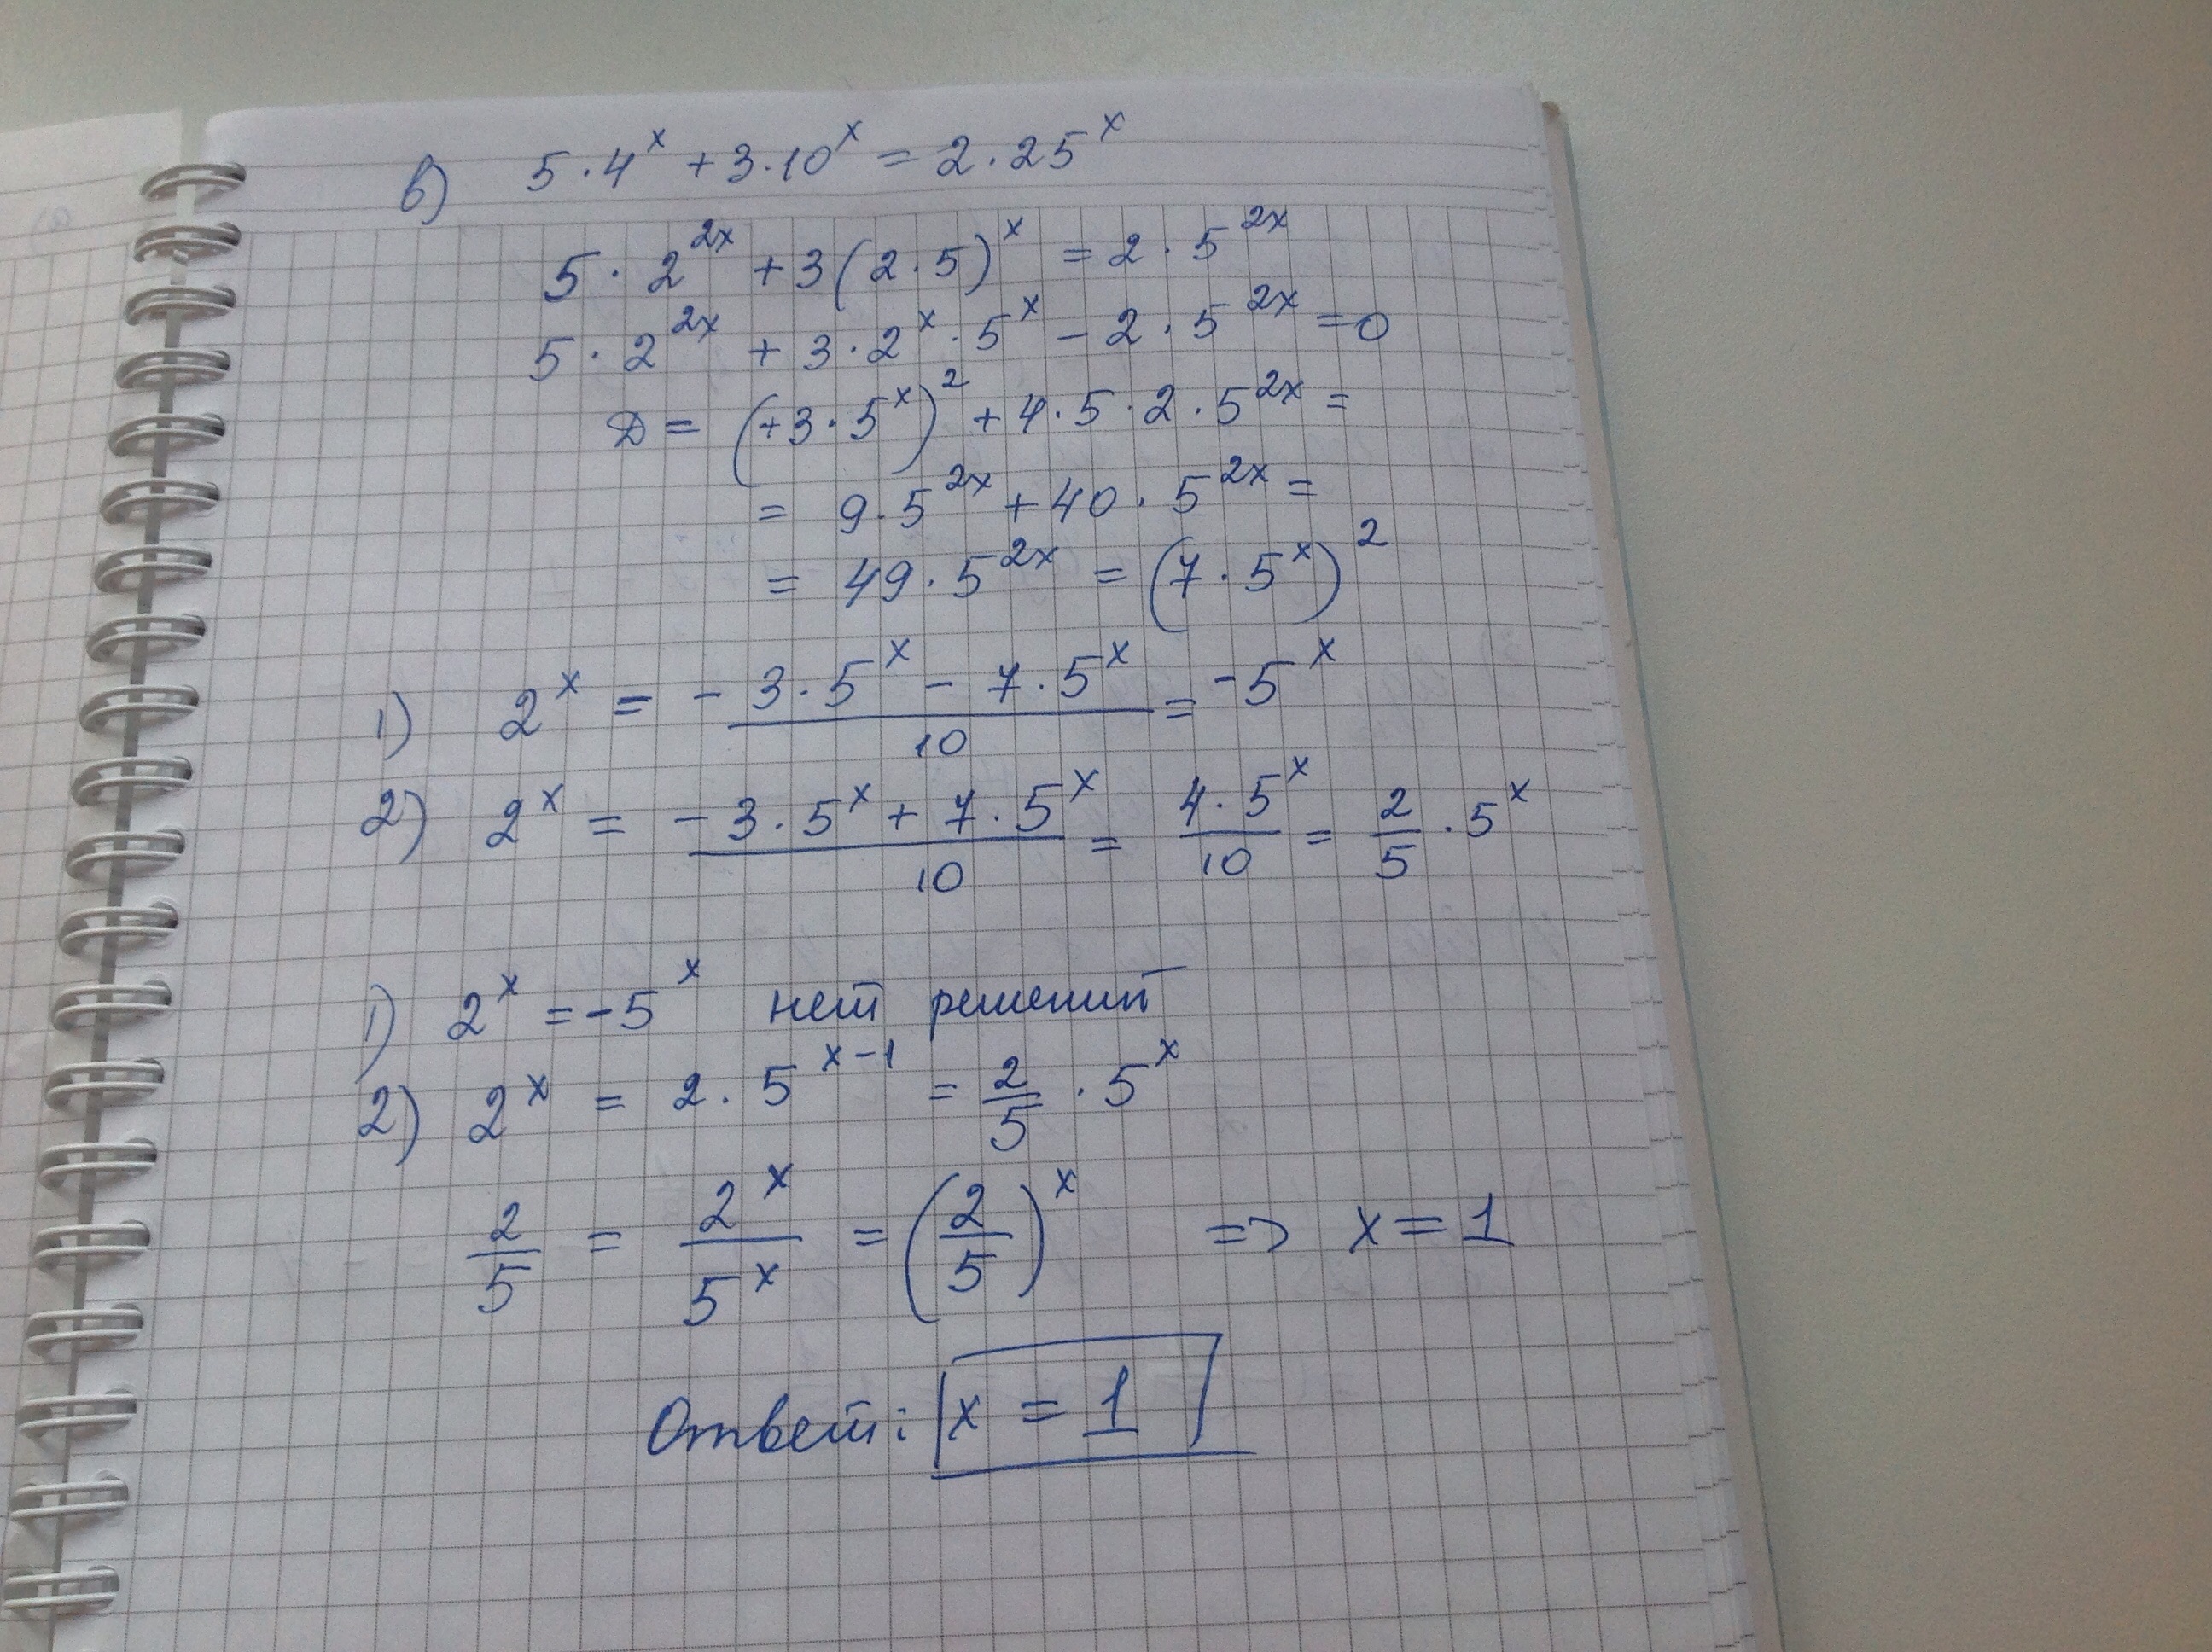 б) 5·4^x + 3·10^x = 2·25^x
5·2^2x + 3(2·5)^x = 2·5^2x
5·2^2x + 3·2^x·5^x − 2·5^2x = 0
D = (+3·5^x)^2 + 4·5·2·5^2x =
= 9·5^2x + 40·5^2x =
= 49·5^2x = (7·5^x)^2
1) 2^x = (−3·5^x − 7·5^x)/10 = −5^x
2) 2^x = (−3·5^x + 7·5^x)/10 = (4·5^x)/10 = 2/5·5^x
1) 2^x = −5^x нет решений
2) 2^x = 2·5^(x−1) = 2/5·5^x
2/5 = 2^x/5^x = (2/5)^x => x = 1
Ответ: x = 1